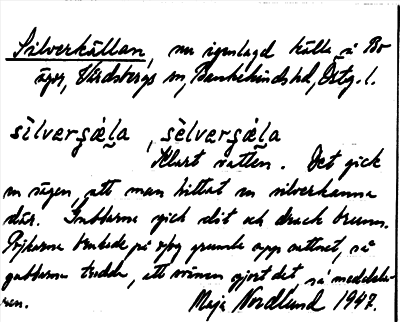 Silverkällan, nu igenlagd källa i Bo
ägor, Vårdsbergs sn, Bankekinds hd, Östg. l.
silvərʂæ̀la, sèlvərʂæ̀la
Klart vatten. Det gick
en sägen, att man hittat en silverkanna
där. Gubbarna gick dit och drack brunn.
Pojkarna brukade på upp grumla upp vattnet, så
gubbarna trodde, att svinen gjort det, så medelstilla
ren.
Maja Nordlund 1947.